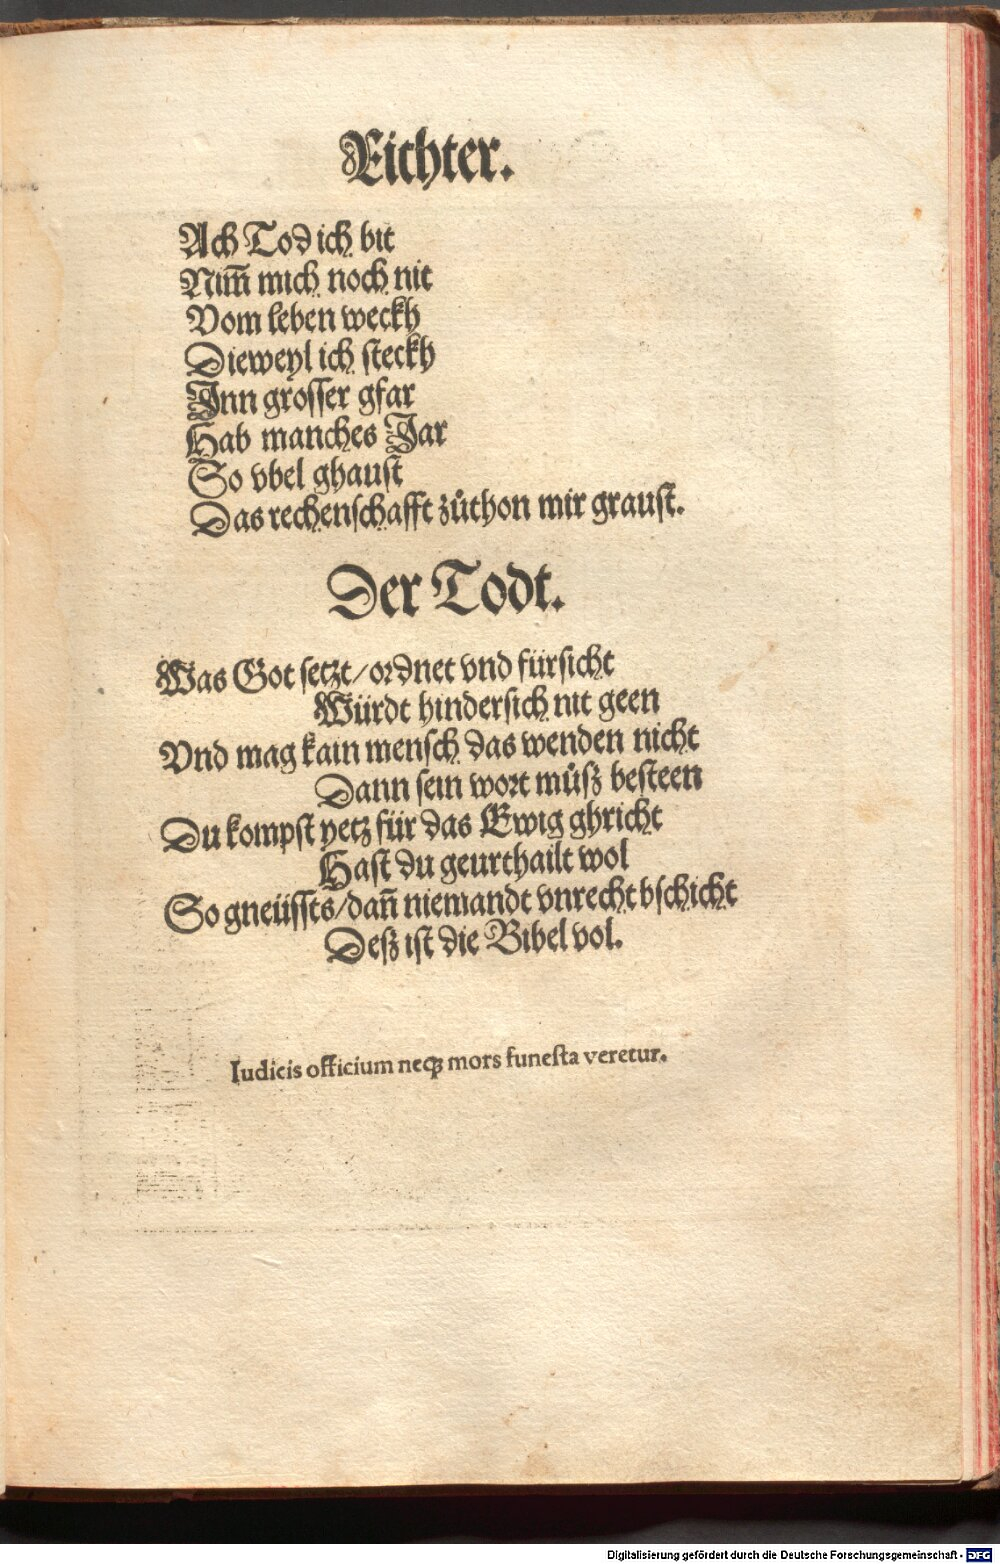 Richter.
Ach Tod ich bit
Nim̃ mich noch nit
Vom leben weckh
Dieweyl ich steckh
Inn grosser gfar
Hab manches Jar
So vbel ghaust
Das rechenschafft zůthon mir graust.
Der Todt.
Was Got setzt/ordnet vnd fürsicht
Würdt hindersich nit geen
Vnd mag kain mensch das wenden nicht
Dann sein wort můsz besteen
Du kompst yetz für das Ewig ghricht
Hast du geurthailt wol
So gneüssts/dañ niemandt vnrecht bschicht
Desz ist die Bibel vol.
Iudicis officium neqꝫ mors funesta veretur.
Digitalisierung gefördert durch die Deutsche Forschungsgemeinschaft - DFG